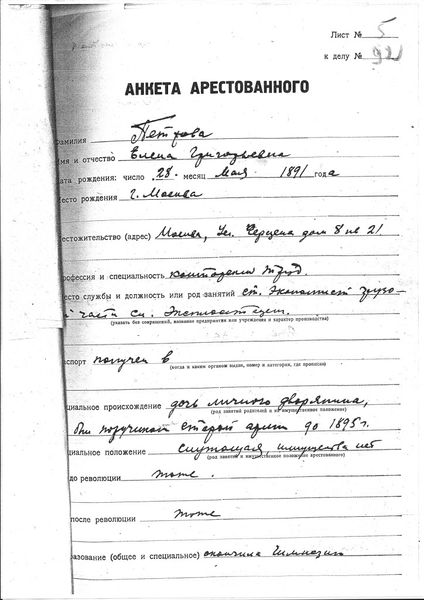 Лист № 5
к делу № 921
АНКЕТА АРЕСТОВАННОГО
амилия Петрова
мя и отчество Елена Григорьевна
ата рождения: число 28. месяц мая 1891 года
есто рождения г. Москва
естожительство (адрес) Москва, ул. Герцена дом 8 кв 21.
рофессия и специальность конторский труд.
сто службы и должность или род занятий ст. экономист грузо-
й части сл. Эксплоатации.
(указать без сокращений, название предприятия или учреждения и характер производства)
спорт получен в
(когда и каким органом выдан, номер и категория, где прописан)
циальное происхождение дочь личного дворянина,
(род занятий родителей и их имущественное положение)
поручиком старой армии до 1895 г.
циальное положение служащая, имущества нет
(род занятий и имущественное положение арестованного)
до революции тоже.
после революции тоже
разование (общее и специальное) окончила гимназию